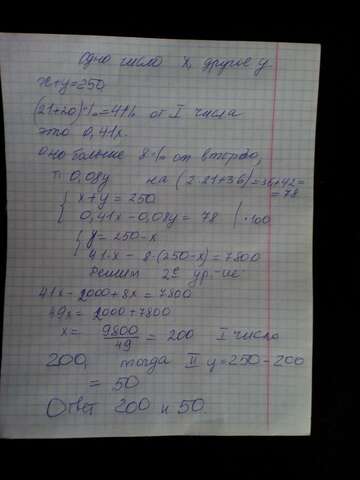 Одно число x, другое y
x+y=250
(21+20)%=41% от I числа
это 0,41x.
оно больше 8% от второго,
т. 0,08y на (2·21+36)=36+42=
=78
{ x+y = 250
0,41x-0,08y = 78 | ·100
{ y = 250-x
41·x - 8·(250-x)=7800
Решим 2е ур-ие
41x - 2000+8x = 7800
49x = 2000+7800
x = 9800/49 = 200 I число
200, тогда II y=250-200
= 50
Ответ 200 и 50.